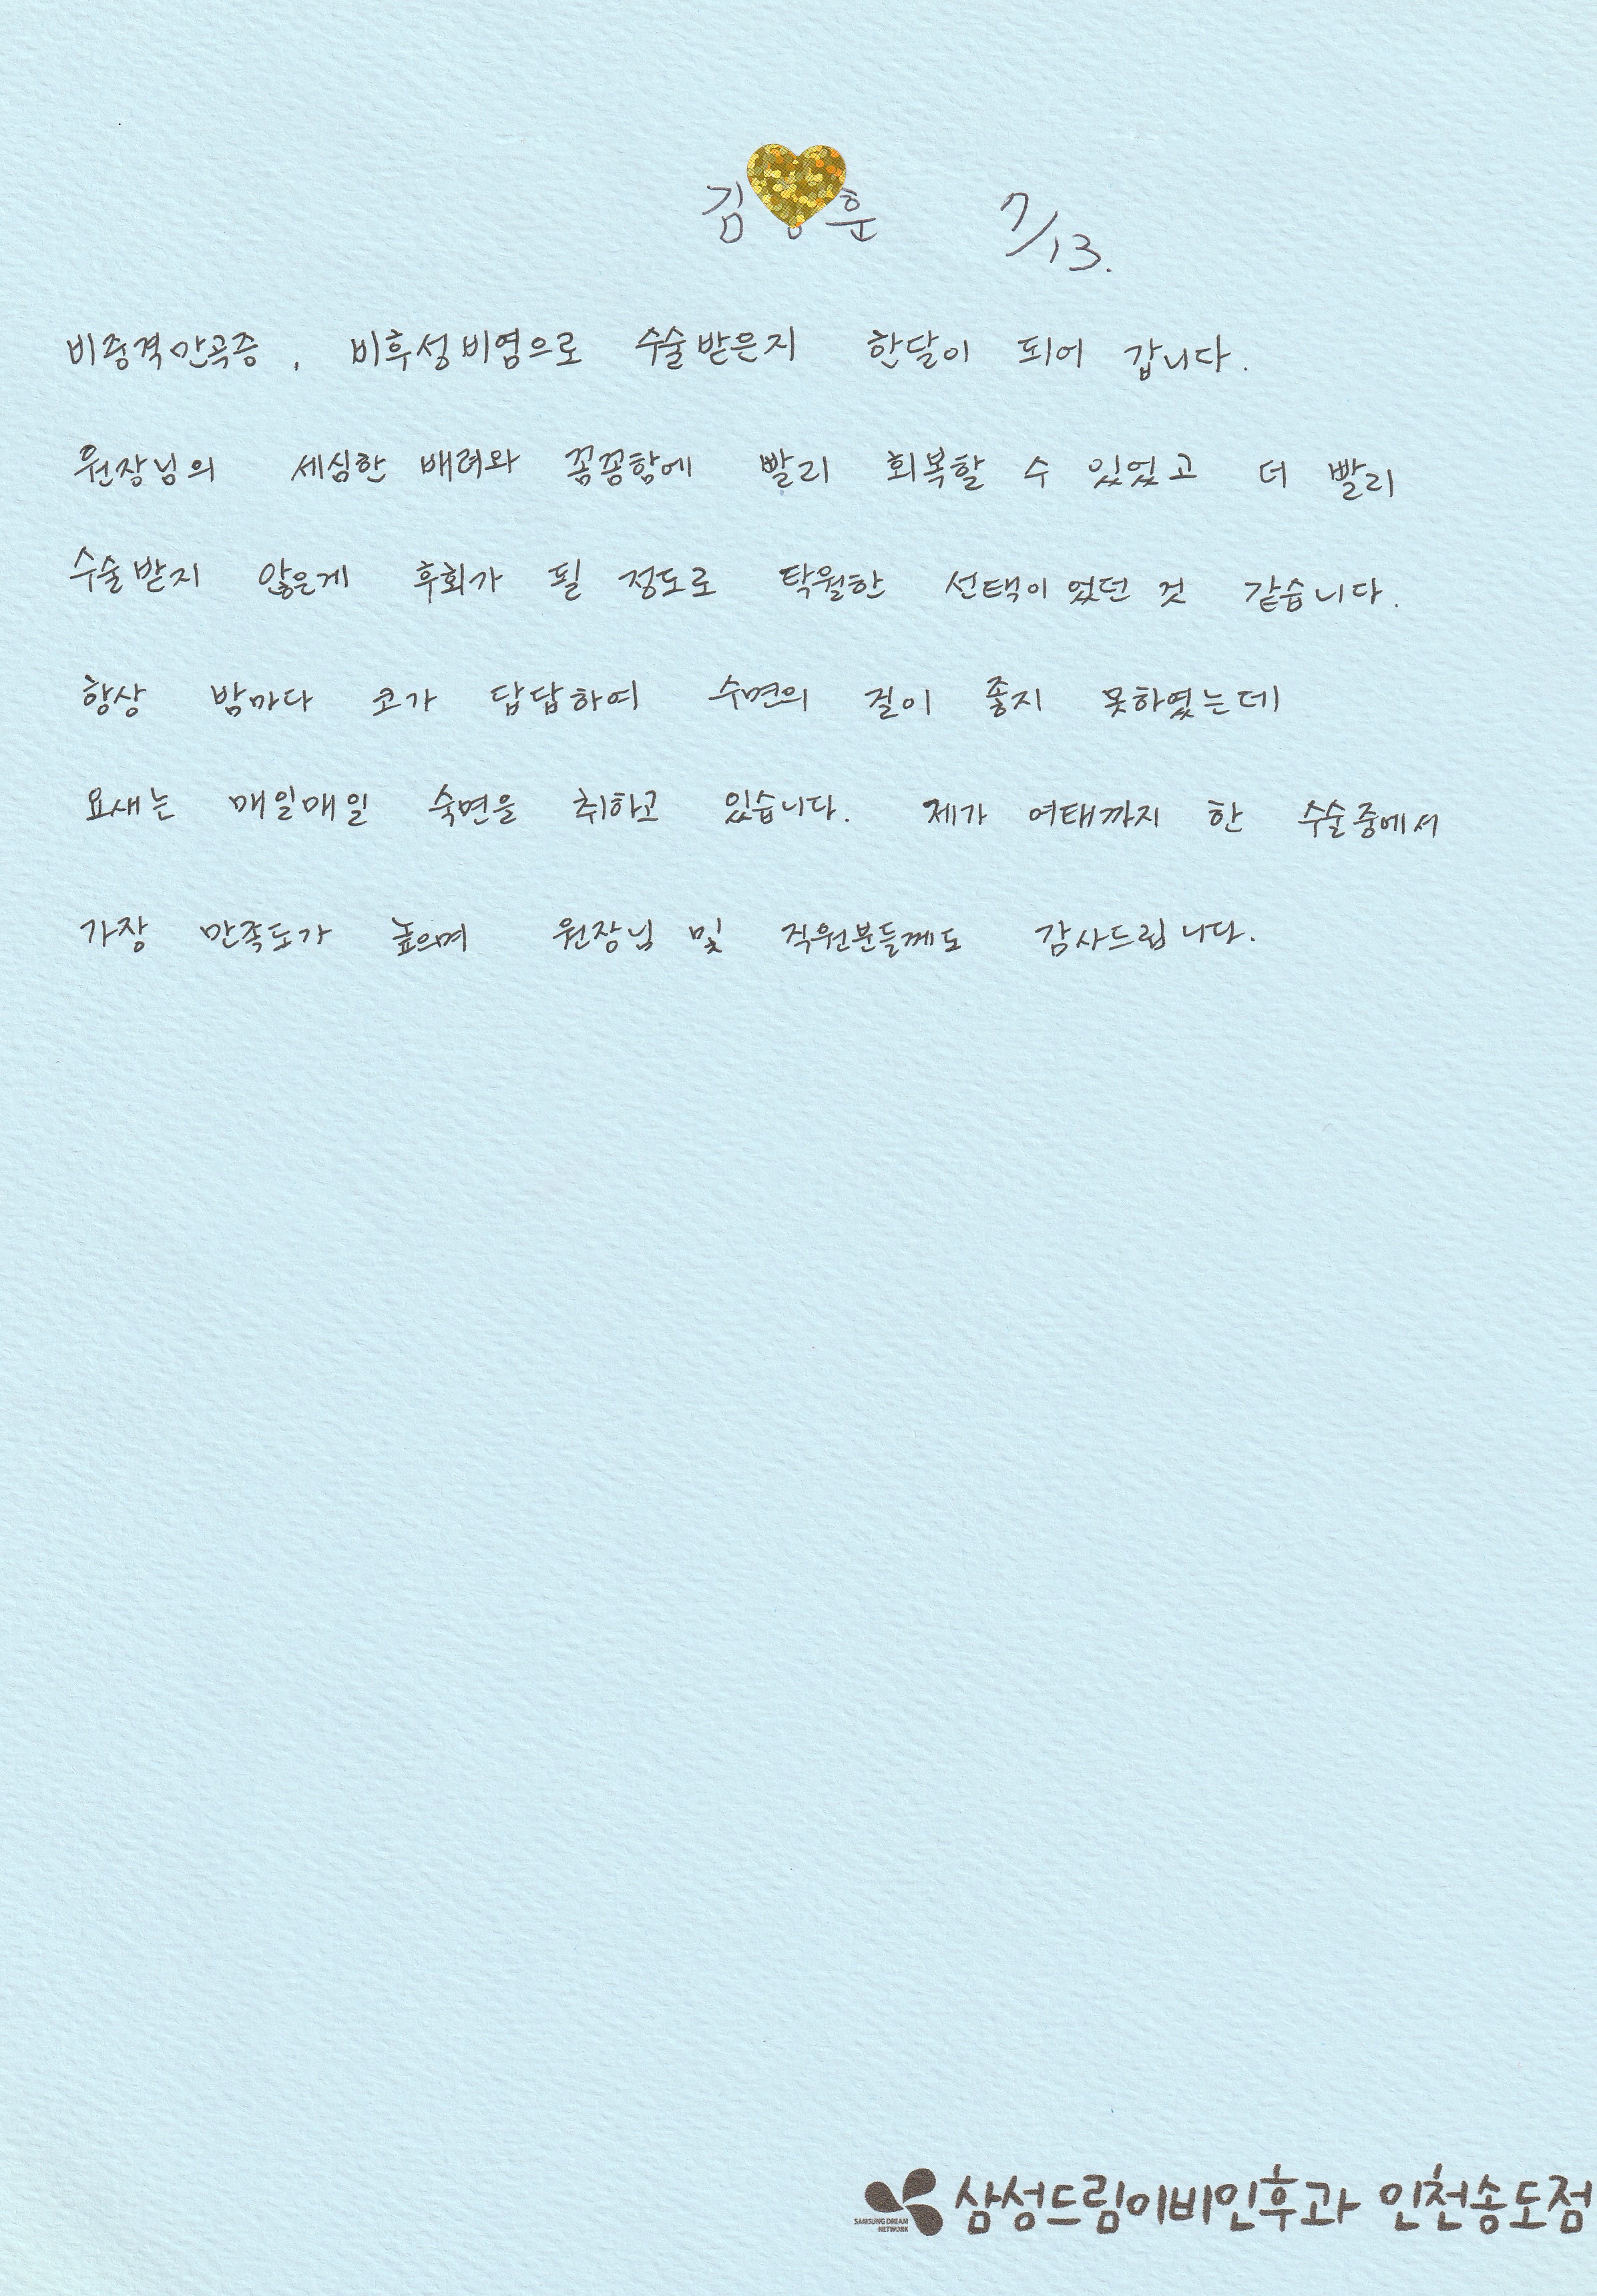 김 훈 7/13.
비중격만곡증, 비후성비염으로 수술받은지 한달이 되어 갑니다.
원장님의 세심한 배려와 꼼꼼함에 빨리 회복할 수 있었고 더 빨리
수술받지 않은게 후회가 될 정도로 탁월한 선택이었던 것 같습니다.
항상 밤마다 코가 답답하여 수면의 질이 좋지 못하였는데
요새는 매일매일 숙면을 취하고 있습니다. 제가 여태까지 한 수술중에서
가장 만족도가 높으며 원장님 및 직원분들께도 감사드립니다.
SAMSUNG DREAM NETWORK 삼성드림이비인후과 인천송도점